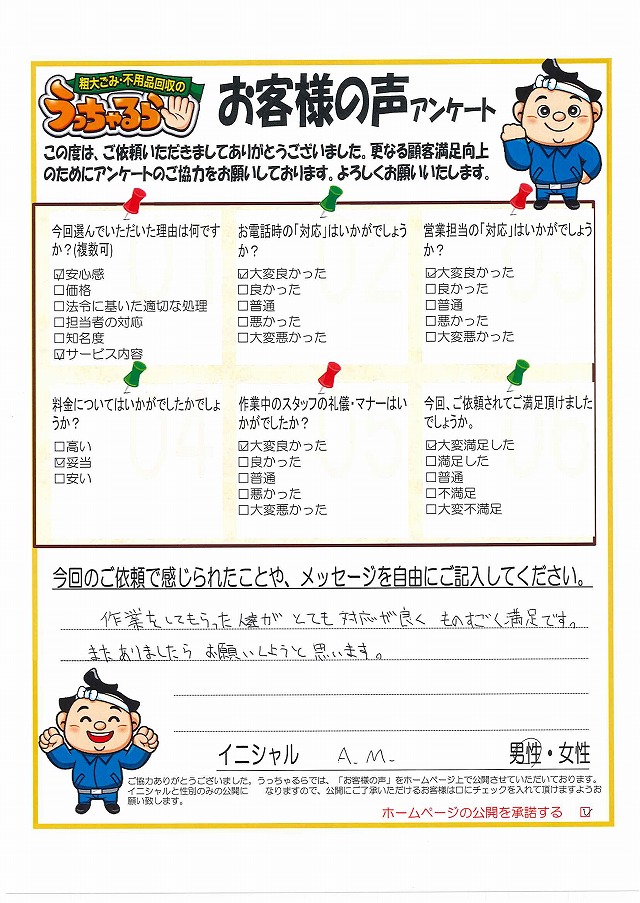 粗大ごみ・不用品回収の
うっちゃるら
お客様の声アンケート
この度は、ご依頼いただきましてありがとうございました。更なる顧客満足向上
のためにアンケートのご協力をお願いしております。よろしくお願いいたします。
今回選んでいただいた理由は何です
か？(複数可)
☑安心感
□価格
□法令に基いた適切な処理
□担当者の対応
□知名度
☑サービス内容
お電話時の「対応」はいかがでしょう
か？
☑大変良かった
□良かった
□普通
□悪かった
□大変悪かった
営業担当の「対応」はいかがでしょう
か？
☑大変良かった
□良かった
□普通
□悪かった
□大変悪かった
料金についてはいかがでしたかでしょ
うか？
□高い
☑妥当
□安い
作業中のスタッフの礼儀・マナーはい
かがでしたか？
☑大変良かった
□良かった
□普通
□悪かった
□大変悪かった
今回、ご依頼されてご満足頂けました
でしょうか。
☑大変満足した
□満足した
□普通
□不満足
□大変不満足
今回のご依頼で感じられたことや、メッセージを自由にご記入してください。
作業をしてもらった人様が とても 対応が良く ものすごく満足です。
またありましたら お願いしようと思います。
イニシャル A.M. 男性・女性
ご協力ありがとうございました。うっちゃるらでは、「お客様の声」をホームページ上で公開させていただいております。
イニシャルと性別のみの公開に なりますので、公開にご了承いただけるお客様は口にチェックを入れて頂けますようお
願い致します。
ホームページの公開を承諾する ☑